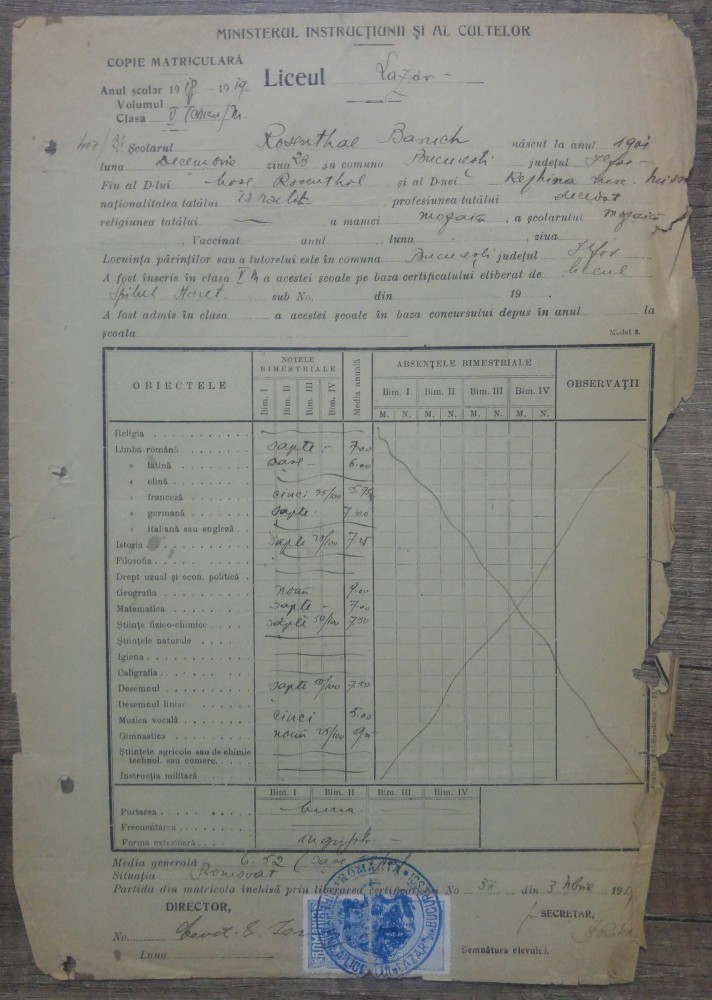 MINISTERUL INSTRUCȚIUNII ȘI AL CULTELOR
COPIE MATRICULARĂ
Liceul Lazăr
Anul școlar 1918 – 1919
Volumul
Clasa V
Școlarul Rosenthal Baruch născut la anul 1901
luna Decembrie ziua 23 în comuna București județul Ilfov
Fiu al D-lui Rosenthal și al D-nei Reghina
naționalitatea tatălui Israelit profesiunea tatălui decedat
religiunea tatălui , a mamei mozaică , a școlarului mozaică
, Vaccinat anul , luna , ziua
Locuința părinților sau a tutorelui este în comuna București județul Ilfov
A fost înscris în clasa V a acestei școale pe baza certificatului eliberat de liceul
Spiru Haret sub No. din 19
A fost admis în clasa a acestei școale în baza concursului depus în anul la
școala
Model 2.
OBIECTELE NOTELE BIMESTRIALE Media anuală ABSENȚELE BIMESTRIALE OBSERVAȚII
Bim. I Bim. II Bim. III Bim. IV Bim. I Bim. II Bim. III Bim. IV
M. N. M. N. M. N. M. N.
Religia
Limba română șapte 7.00
" latină șase 6.00
" elină
" franceză cinci 75/100 5.75
" germană șapte 7.00
" italiană sau engleză
Istoria șapte 25/100 7.25
Filosofia
Drept uzual și econ. politică
Geografia nouă 9.00
Matematica șapte 7.00
Științe fizico-chimice șapte 50/100 7.50
Științele naturale
Igiena
Caligrafia
Desemnul șapte 50/100 7.50
Desemnul liniar
Muzica vocală cinci 5.00
Gimnastica nouă 25/100
Științele agricole sau de chimie
technol. sau comerc.
Instrucția militară
Bim. I Bim. II Bim. III Bim. IV
Purtarea buna
Frecuentarea
Forma exterioară
Media generală 6.52 (șase
Situația Promovat
Partida din matricola închisă prin liberarea certificatului No din 3
DIRECTOR,
SECRETAR,
No.
Luna
Semnătura elevului,
ROMÂNIA